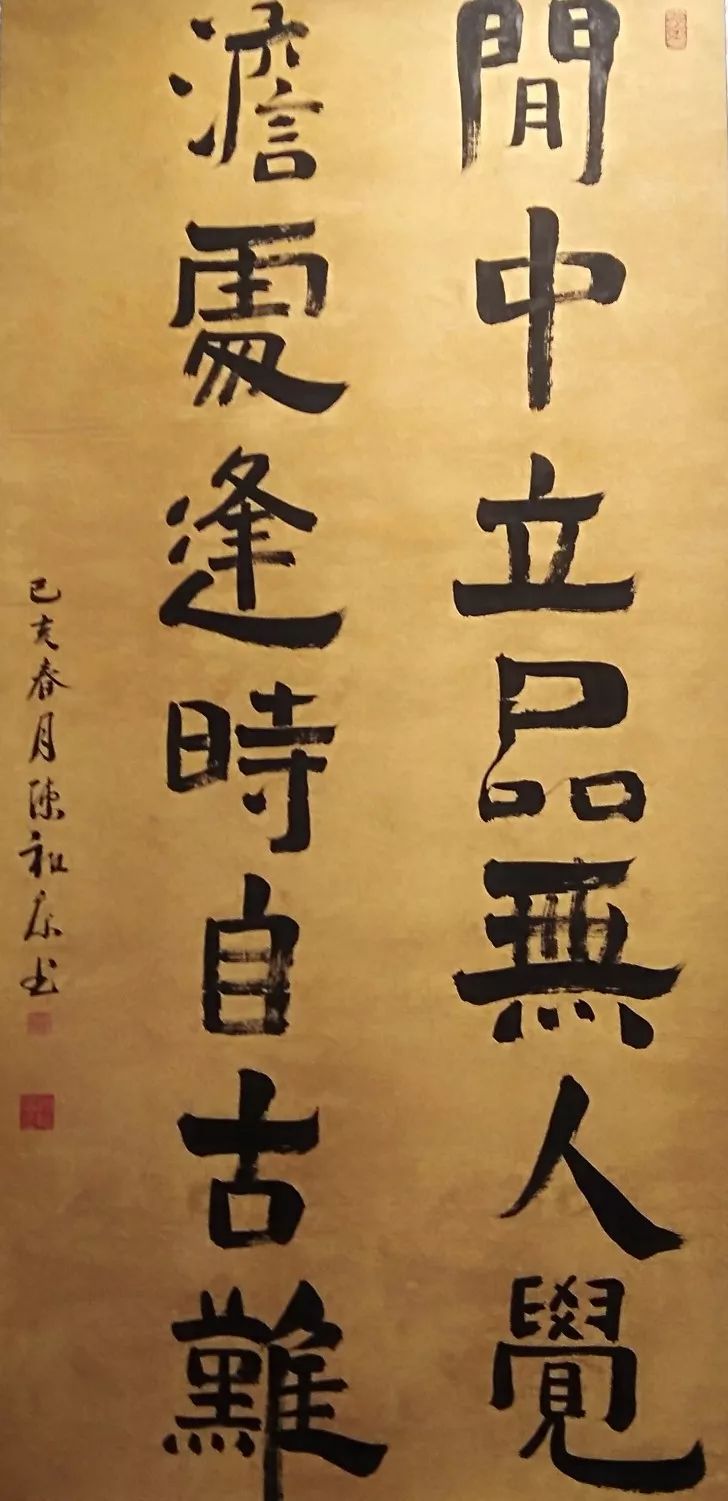 閒中立品無人覺
澹處逢時自古難
己亥春月陳祖康书